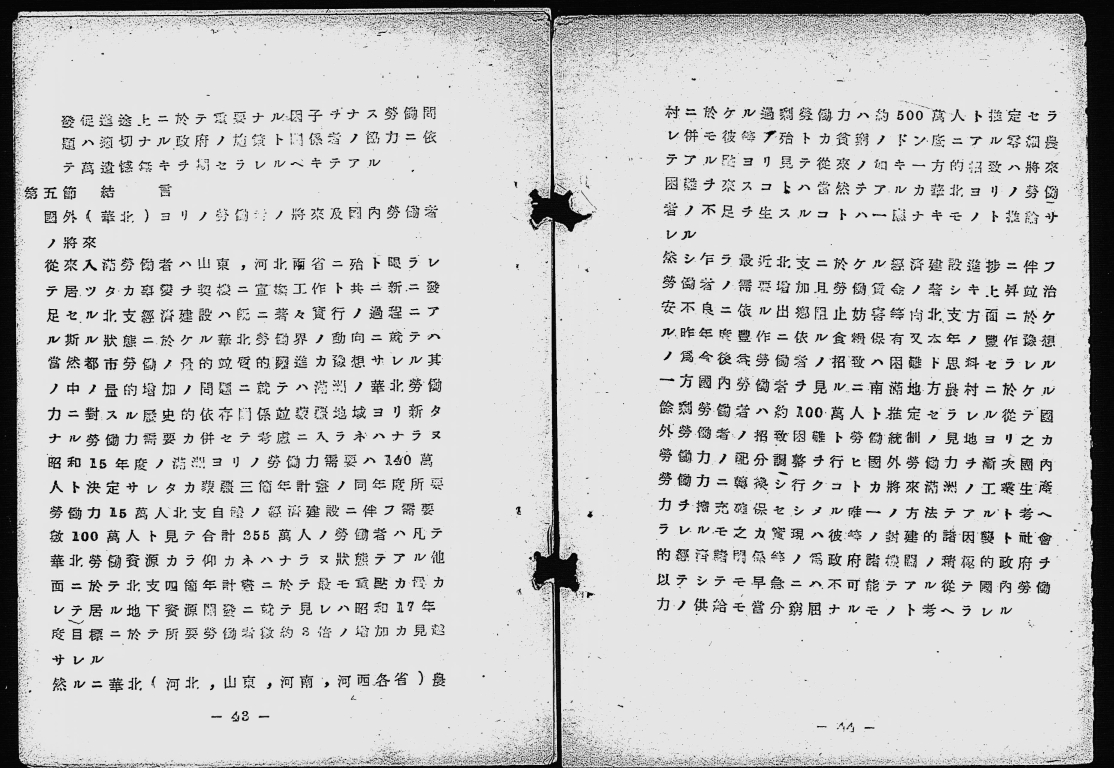 發促進途上ニ於テ重要ナル因子ヲナス勞働問
題ハ適切ナル政府ノ施策ト關係者ノ協力ニ依
テ萬遺憾無キヲ期セラレルヘキテアル
第五節 結 言
國外(華北)ヨリノ勞働者ノ將來及國內勞働者
ノ將來
從來入滿勞働者ハ山東,河北兩省ニ殆ト限ラレ
テ居ツタカ事變ヲ契機ニ宣撫工作ト共ニ新ニ發
足セル北支經濟建設ハ既ニ著々實行ノ過程ニア
ル斯ル狀態ニ於ケル華北勞働界ノ動向ニ就テハ
當然都市勞働ノ量的竝質的躍進カ豫想サレル其
ノ中ノ量的增加ノ問題ニ就テハ滿洲ノ華北勞働
力ニ對スル歷史的依存關係竝蒙疆地域ヨリ新タ
ナル勞働力需要カ併セテ考慮ニ入ラネハナラヌ
昭和15年度ノ滿洲ヨリノ勞働力需要ハ140萬
人ト決定サレタカ蒙疆三箇年計畫ノ同年度所要
勞働力15萬人北支自體ノ經濟建設ニ伴フ需要
數100萬人ト見テ合計255萬人ノ勞働者ハ凡テ
華北勞働資源カラ仰カネハナラヌ狀態テアル他
面ニ於テ北支四箇年計畫ニ於テ最モ重點カ置カ
レテ居ル地下資源開發ニ就テ見レハ昭和17年
度目標ニ於テ所要勞働者數約3倍ノ增加カ見越
サレル
然ルニ華北(河北,山東,河南,河西各省)農
— 43 —
村ニ於ケル過剩勞働力ハ約500萬人ト推定セラ
レ併モ彼等ノ殆トカ貧窮ノドン底ニアル零細農
テアル點ヨリ見テ從來ノ如キ一方的招致ハ將來
困難ヲ來スコトハ當然テアルカ華北ヨリノ勞働
者ノ不足ヲ生スルコトハ一應ナキモノト推論サ
レル
然シ乍ラ最近北支ニ於ケル經濟建設進捗ニ伴フ
勞働者ノ需要增加且勞働賃金ノ著シキ上昇竝治
安不良ニ依ル出鄕阻止妨害等尙北支方面ニ於ケ
ル昨年度豐作ニ依ル食糧確保有又本年ノ豐作豫想
ノ爲今後入勞働者ノ招致ハ困難ト思料セラレル
一方國內勞働者ヲ見ルニ南滿地方農村ニ於ケル
餘剩勞働者ハ約100萬人ト推定セラレル從テ國
外勞働者ノ招致困難ト勞働統制ノ見地ヨリ之カ
勞働力ノ配分調整ヲ行ヒ國外勞働力ヲ漸次國內
勞働力ニ轉換シ行クコトカ將來滿洲ノ工業生產
力ヲ擴充確保セシメル唯一ノ方法テアルト考ヘ
ラレルモ之カ實現ハ彼等ノ封建的諸因襲ト社會
的經濟諸關係等ノ爲政府諸機關ノ積極的政府ヲ
以テシテモ早急ニハ不可能テアル從テ國內勞働
力ノ供給モ當分窮屈ナルモノト考ヘラレル
— 44 —